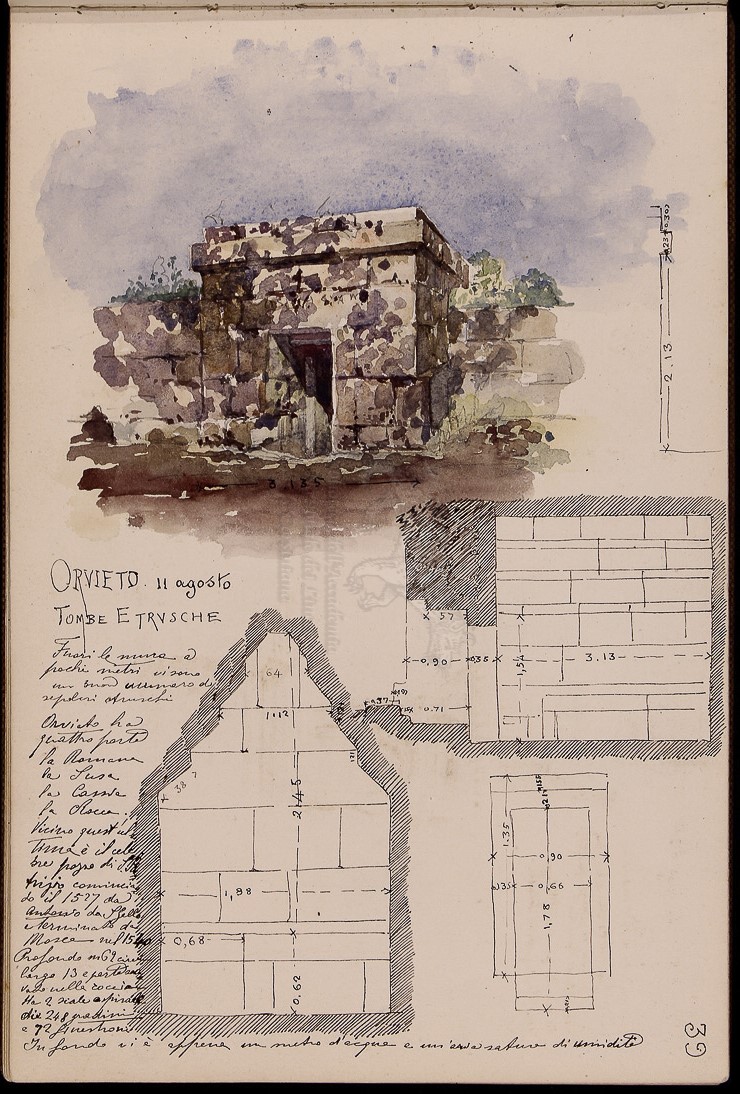 0.30
0.23
2.13
3.135
ORVIETO. 11 agosto
TOMBE ETRVSCHE
Fuori le mura a
pochi metri vi sono
un buon numero di
sepolcri etruschi
Orvieto ha
quattro porte
la Romana
la
la Cassia
la Rocca.
Vicino quest'ul
tima è il cele
bre pozzo di
trizio comincia
do il 1527 da
Antonio da
e terminato da
Mosca nel 1540
Profondo m 62 circa
largo 13 e
nella roccia
Ha 2 scale a spirale
di 248 gradini
e 72 finestroni
In fondo vi è appena un metro d'acqua e un'aria satura di umidità
57
0,90
0.35
1,54
3.13
0.37
0.71
64
1.12
38
2.45
1,88
0,68
0,62
1.35
0,90
0,66
1,78
39